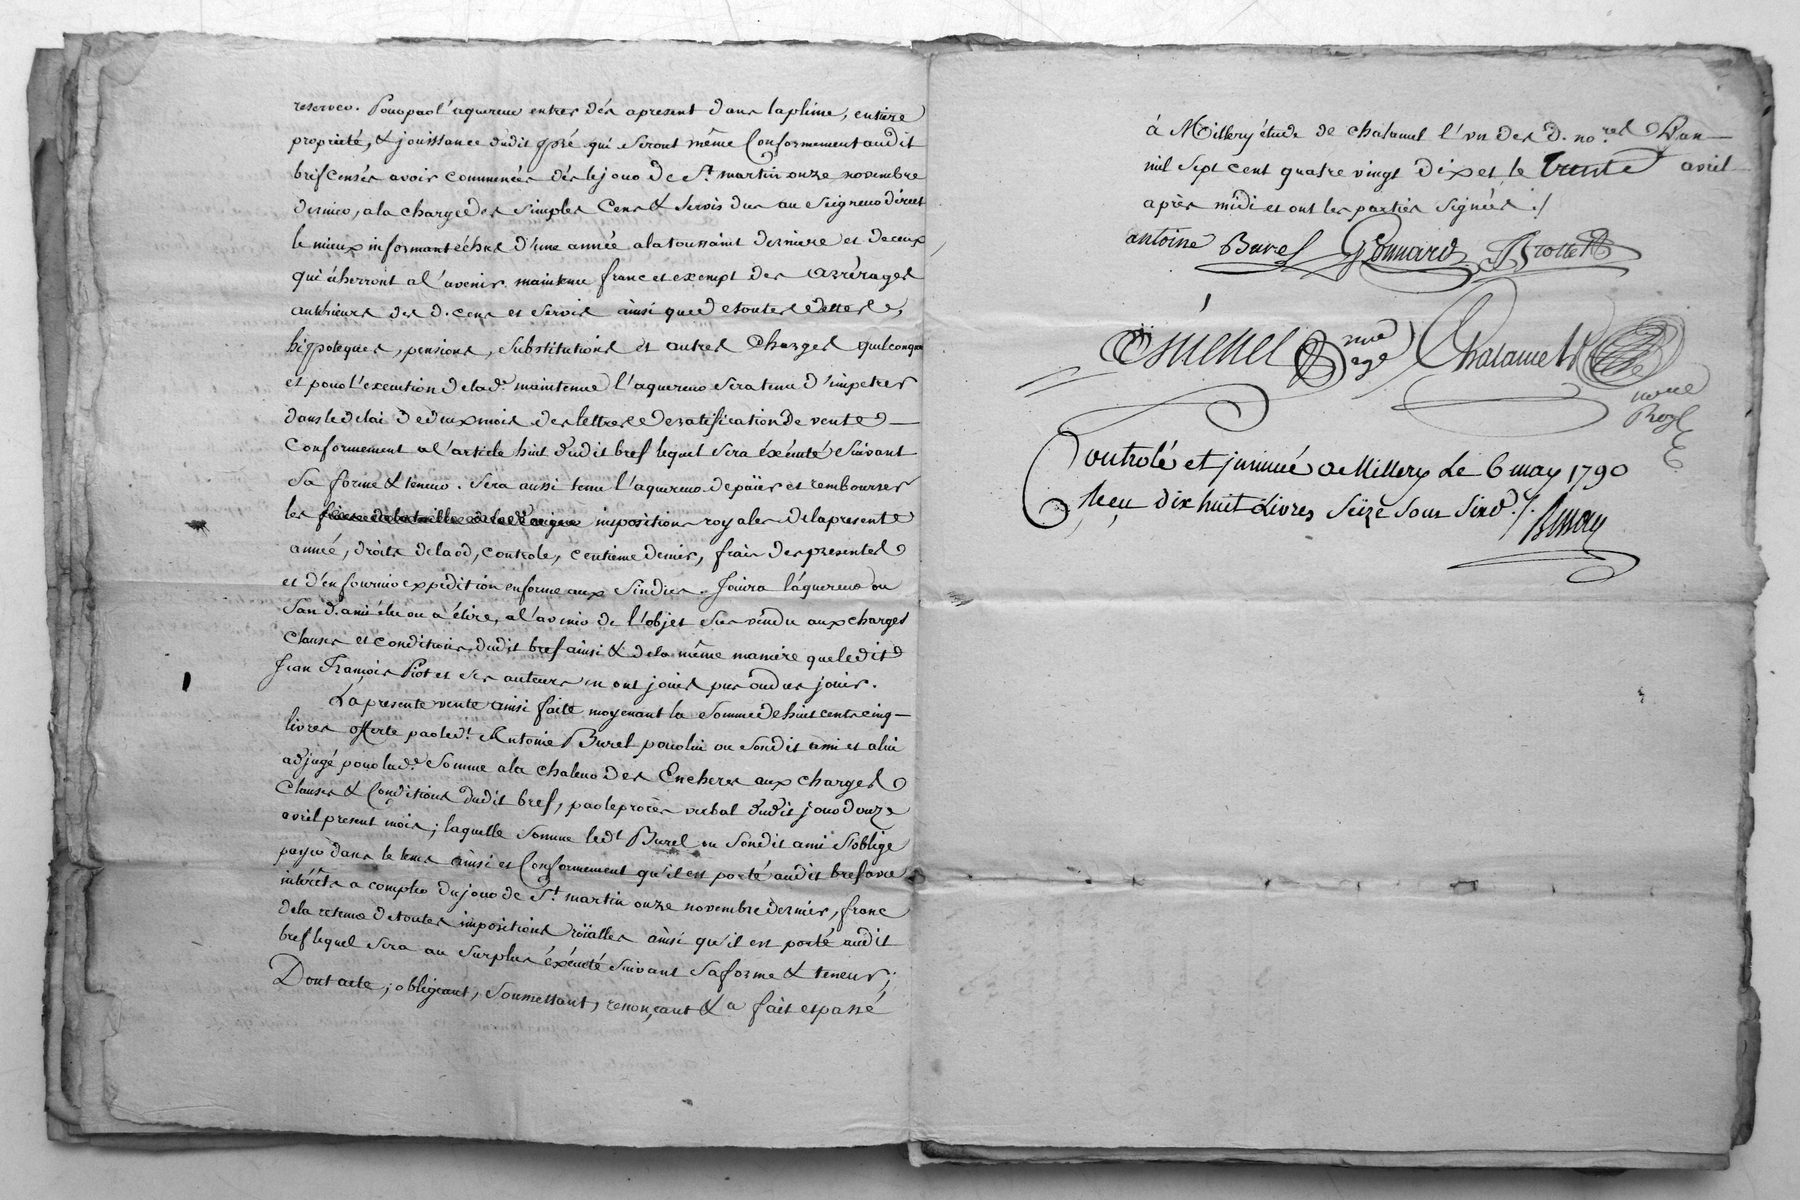 reserves. Pour par l'aquereur entrer dés apresent dans la pleine, entiere
proprieté, & jouissance dudit pré qui seront même Conformement audit
bref censés avoir commencés dès le jour de St. martin onze novembre
dernier, a la charge des simples Cens & servis dus au Seigneur direct
le mieux informant échus d'une année a la toussaint derniere et de ceux
qui écherront a l'avenir. maintenu franc et exempt des arrérages
antérieurs des d. cens et servis ainsi que de toutes dettes,
hippoteques, pensions, substitutions et autres charges quelconques
et pour l'execution de lade. maintenue l'aquereur sera tenu d'impetrer
dans le delai de deux mois des lettres de ratification de vente
Conformement a l'article huit dudit bref lequel sera éxécuté suivant
sa forme & teneur. sera aussi tenu l'aquereur de païer et rembourser
les impositions royales de la presente
année, droits de la od, controle, centieme denier, frais des presentes
et d'en fournir expedition en forme aux sindics. Jouira l'aquereur ou
son d. ami élu ou a élire, a l'avenir de l'objet sus vendu aux charges
clauses et conditions dudit bref ainsi & de la même maniere que ledit
Jean François Piot et ses auteurs en ont jouis pus ou dus jouir.
La presente vente ainsi faite moyenant la somme de huit cents cinq
livres offerte par led.t Antoine Burel pour lui ou sondit ami et a lui
adjugé pour lade. somme a la chaleur des Encheres aux charges
Clauses & Conditions dudit bref, par le procès verbal dudit jour douze
avril present mois; laquelle somme led.t Burel ou sondit ami s'oblige
payer dans le tems ainsi et Conformement qu'il est porté audit bref avec
intérêts a compter du jour de St. martin onze novembre dernier, franc
de la retenue de toutes impositions roïalles ainsi qu'il est porté audit
bref lequel sera au surplus éxécuté suivant sa forme & teneur;
Dont acte; obligeant, soumettant, renonçant & a fait et passé
à Millery étude de chalamel l'un des d. no.res L'an
mil sept cent quatre vingt dix et le trente avril
après midi et ont les parties signées ./
antoine Burel Gonnard
Chalamel
Royl
Controlé et insinué a Millery Le 6 may 1790
Reçu dix huit Livres seize sous six d. /.